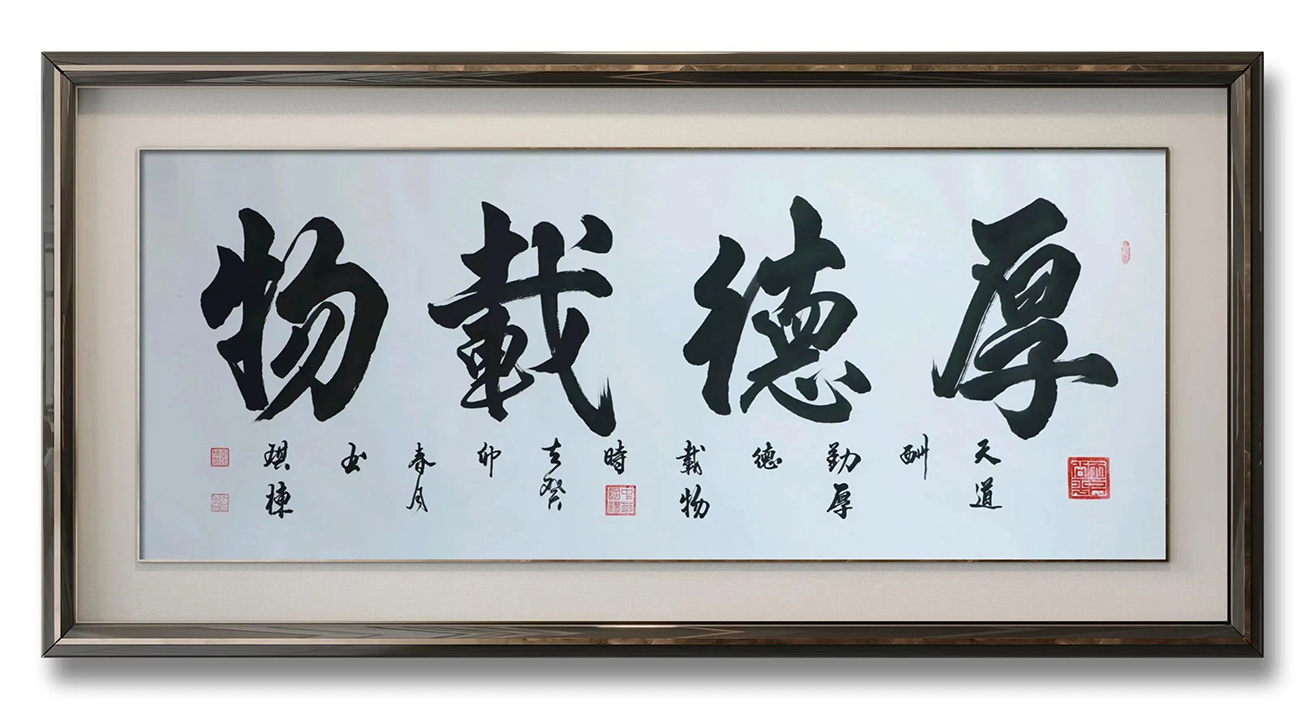 厚德載物
天道
酬
勤厚
德
載物
時
在癸
卯
春月
书
琪棟